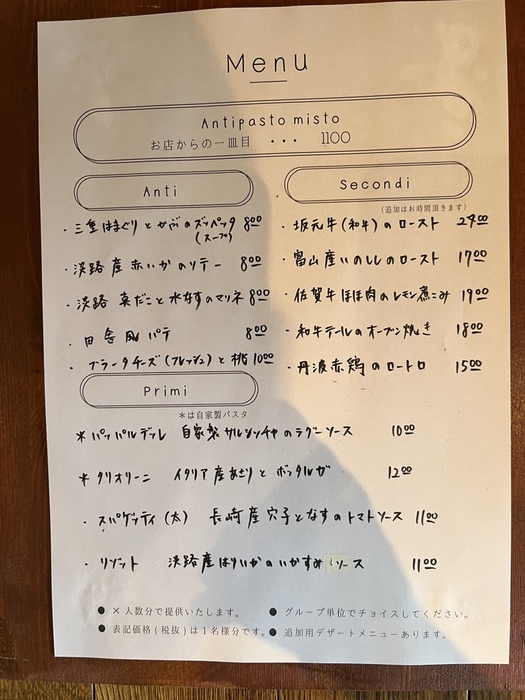 Menu
Antipasto misto
お店からの一皿目 ・・・ 1100
Anti
・三重はまぐりとかぶのズッペッタ 800
(スープ)
・淡路産赤いかのソテー 800
・淡路 真だこと水なすのマリネ 800
・田舎風パテ 800
・ブラータチーズ(フレッシュ)と桃 1000
Secondi
(追加はお時間頂きます)
・坂元牛(和牛)のロースト 2400
・富山産いのししのロースト 1700
・佐賀牛ほほ肉のレモン煮こみ 1900
・和牛テールのオーブン焼き 1800
・丹波赤鶏のロートロ 1500
Primi
＊は自家製パスタ
＊パッパルデッレ 自家製サルシッチャのラグーソース 1000
＊タリオリーニ イタリア産あさりとボッタルガ 1200
・スパゲッティ(太) 長崎産穴子となすのトマトソース 1100
・リゾット 淡路産はりいかのいかすみソース 1100
●×人数分で提供いたします。
●表記価格(税抜)は1名様分です。
●グループ単位でチョイスしてください。
●追加用デザートメニューあります。